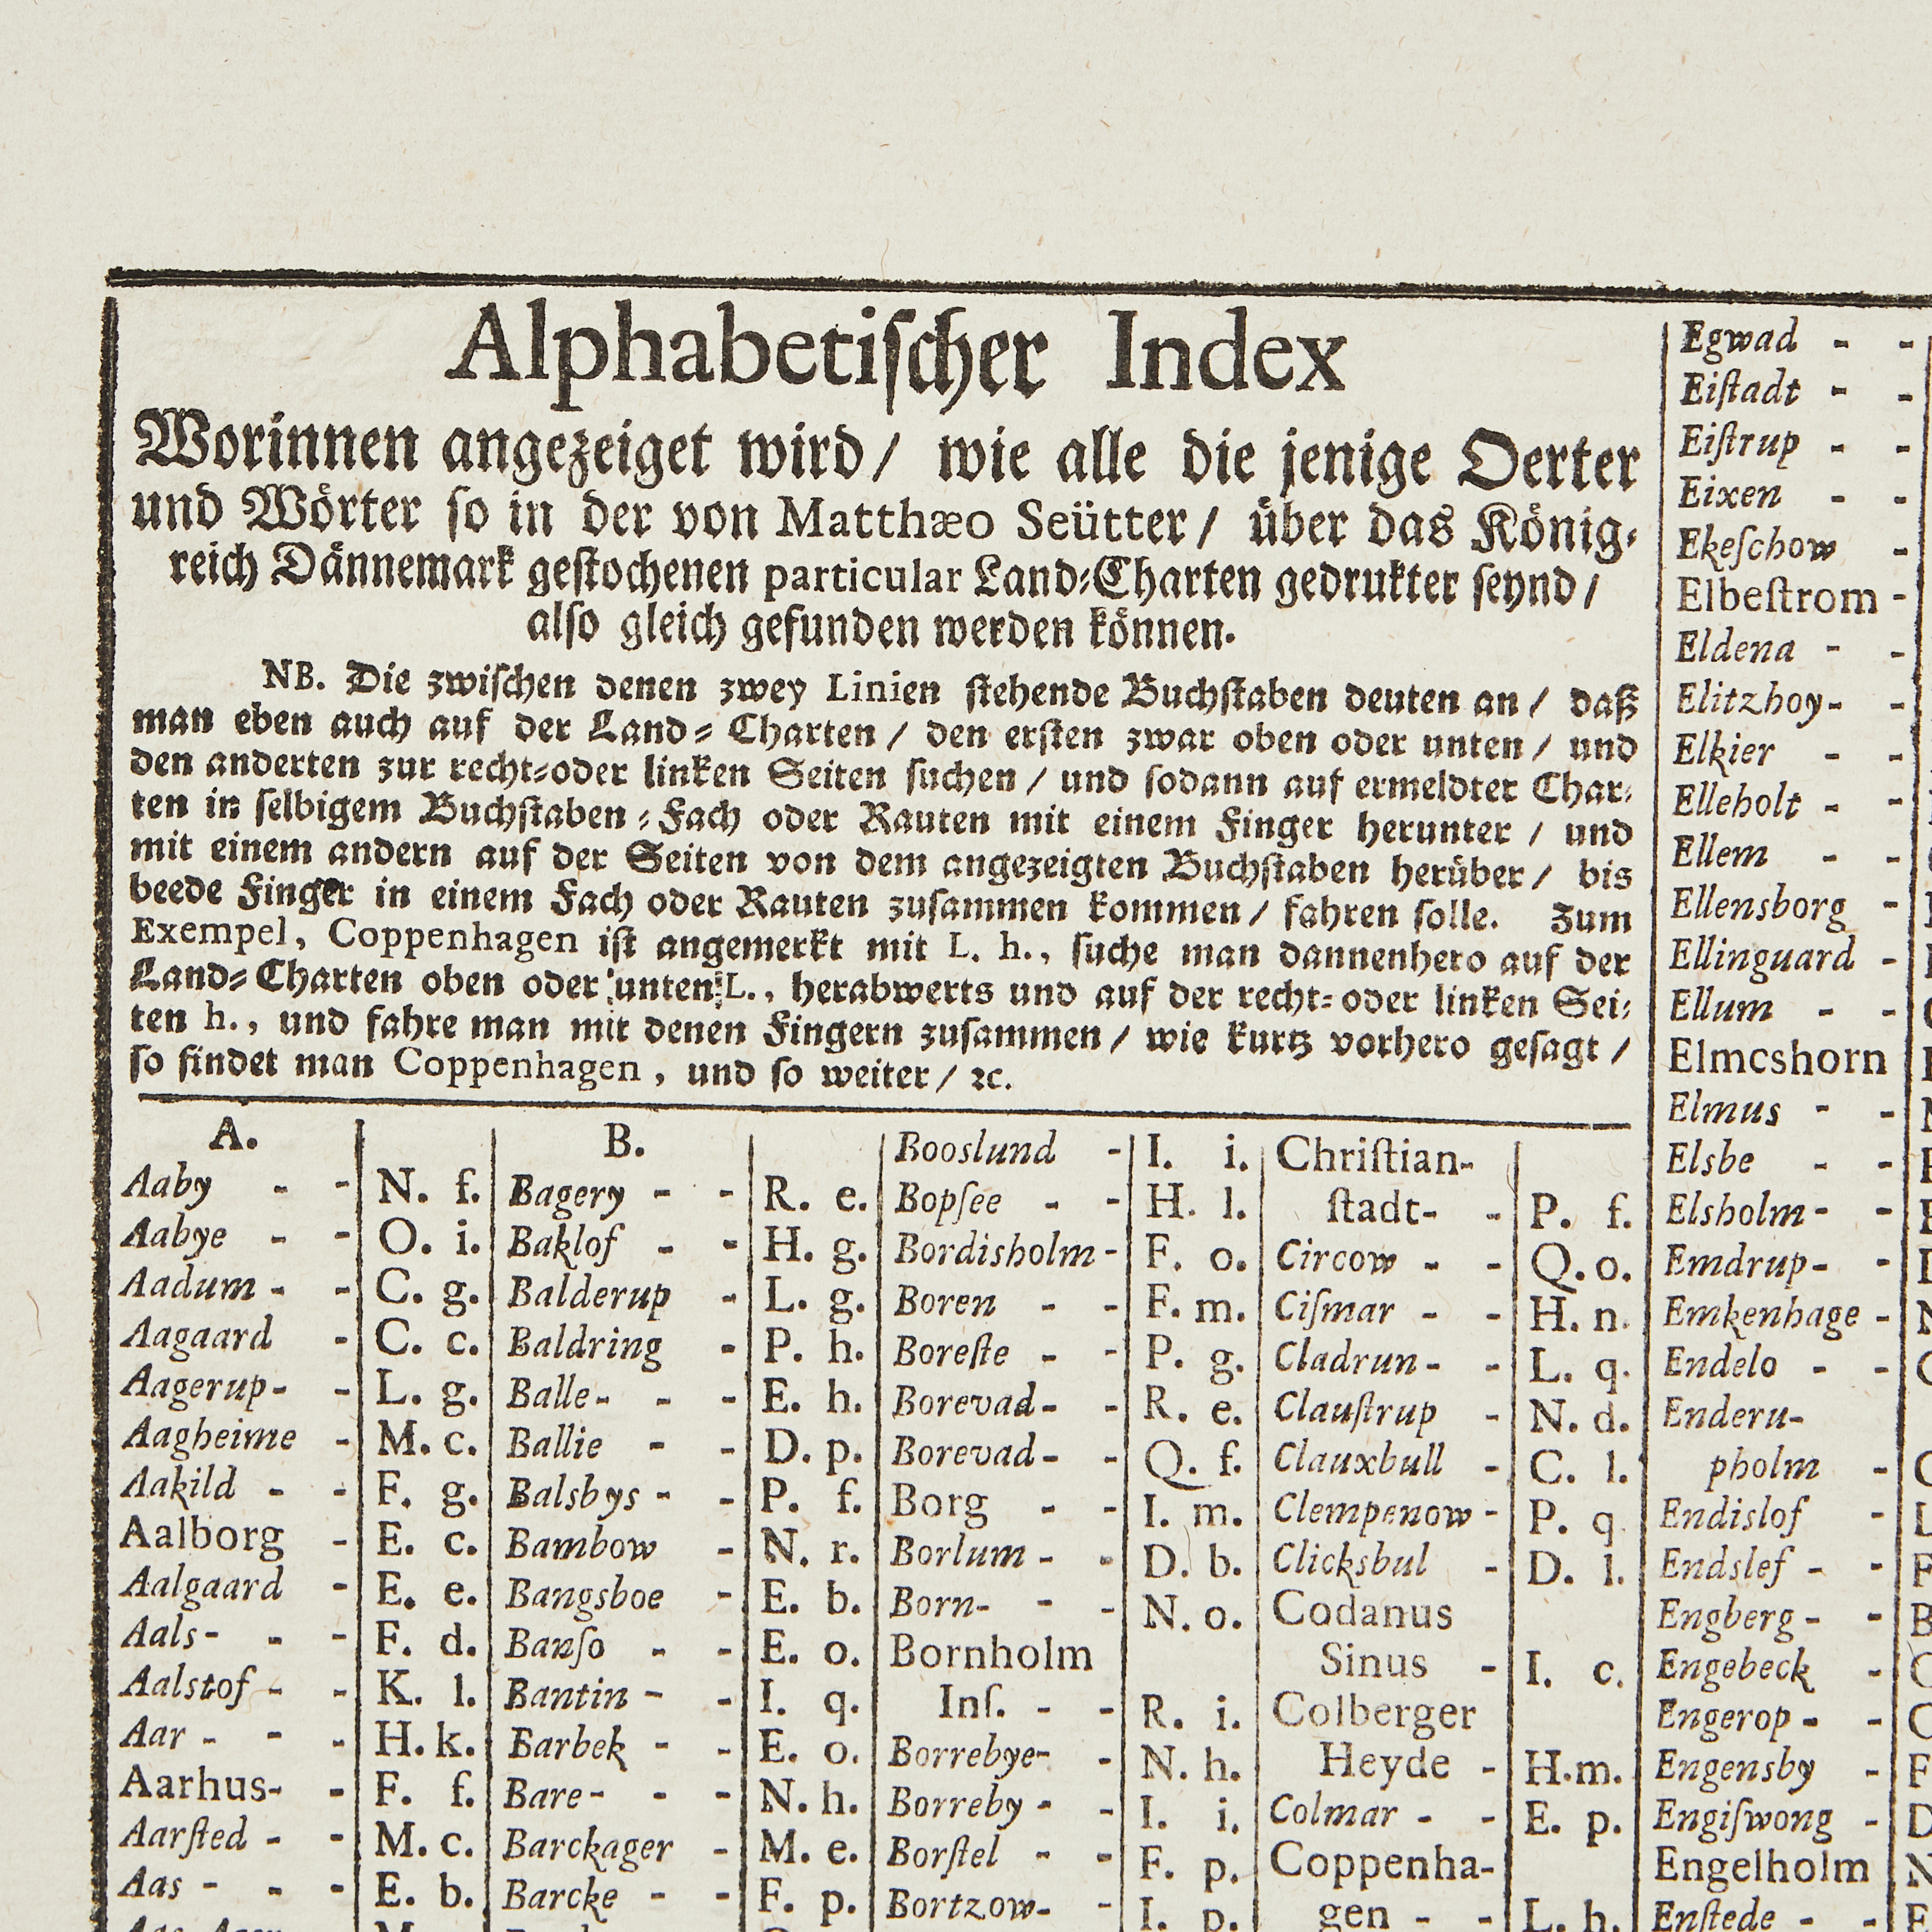 Alphabetiſcher Index
Worinnen angezeiget wird/ wie alle die jenige Oerter
und Wörter ſo in der von Matthæo Seütter/ über das König⸗
reich Dännemark geſtochenen particular Land⸗Charten gedrukter ſeynd/
alſo gleich gefunden werden können.
NB. Die zwiſchen denen zwey Linien ſtehende Buchſtaben deuten an/ daß
man eben auch auf der Land⸗Charten/ den erſten zwar oben oder unten/ und
den anderten zur recht⸗oder linken Seiten ſuchen/ und ſodann auf ermeldter Char⸗
ten in ſelbigem Buchſtaben⸗Fach oder Rauten mit einem Finger herunter/ und
mit einem andern auf der Seiten von dem angezeigten Buchſtaben herüber/ bis
beede Finger in einem Fach oder Rauten zuſammen kommen/ fahren ſolle. Zum
Exempel, Coppenhagen iſt angemerkt mit L. h., ſuche man dannenhero auf der
Land⸗Charten oben oder unten L., herabwerts und auf der recht⸗oder linken Sei⸗
ten h., und fahre man mit denen Fingern zuſammen/ wie kurtz vorhero geſagt/
ſo findet man Coppenhagen, und ſo weiter/ ꝛc.
A.
Aaby - - N. f.
Aabye - - O. i.
Aadum - - C. g.
Aagaard - C. c.
Aagerup- - L. g.
Aagheime - M. c.
Aakild - - F. g.
Aalborg - E. c.
Aalgaard - E. e.
Aals- - - F. d.
Aalstof - - K. l.
Aar - - - H. k.
Aarhus- - F. f.
Aarſted - - M. c.
Aas - - - E. b.
B.
Bagery - - R. e.
Baklof - - H. g.
Balderup - L. g.
Baldring - P. h.
Balle- - - E. h.
Ballie - - D. p.
Balsbys - - P. f.
Bambow - N. r.
Bangsboe - E. b.
Banſo - - E. o.
Bantin - - I. q.
Barbek - - E. o.
Bare- - - N. h.
Barckager - M. e.
Barcke - - F. p.
Booslund - I. i.
Bopſee - - H. l.
Bordisholm - F. o.
Boren - - F. m.
Boreſte - - P. g.
Borevad- - R. e.
Borevad- - Q. f.
Borg - - I. m.
Borlum - - D. b.
Born- - - N. o.
Bornholm
Inſ. - - R. i.
Borrebye- - N. h.
Borreby - - I. i.
Borſtel - - F. p.
Bortzow- - I. p.
Chriſtian-
ſtadt- - P. f.
Circow - - Q. o.
Ciſmar - - H. n.
Cladrun - - L. q.
Clauſtrup - N. d.
Clauxbull - C. l.
Clempenow - P. q.
Clicksbul - D. l.
Codanus
Sinus - I. c.
Colberger
Heyde - H. m.
Colmar - - E. p.
Coppenha-
gen - - L. h.
Egwad - -
Eiſtadt - -
Eiſtrup - -
Eixen - -
Ekeſchow -
Elbeſtrom -
Eldena - -
Elitzhoy- -
Elkier - -
Elleholt - -
Ellem - -
Ellensborg -
Ellinguard -
Ellum - -
Elmcshorn
Elmus - -
Elsbe - -
Elsholm - -
Emdrup- -
Emkenhage -
Endelo - -
Enderu-
pholm -
Endislof -
Endslef - -
Engberg - -
Engebeck -
Engerop - -
Engensby -
Engiſwong -
Engelholm
Enſtede - -